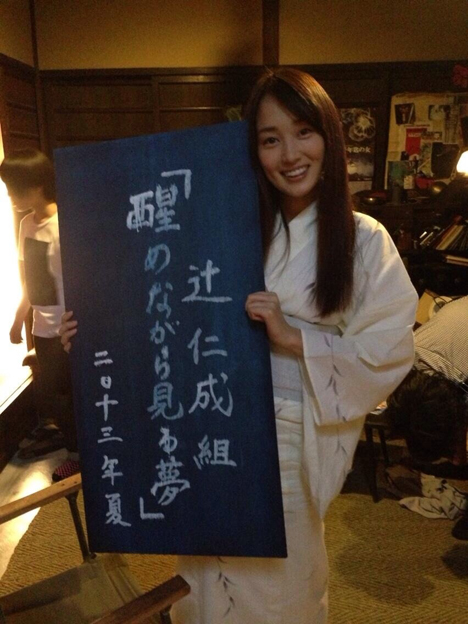 辻仁成組
「醒めながら見る夢」
二〇十三年夏